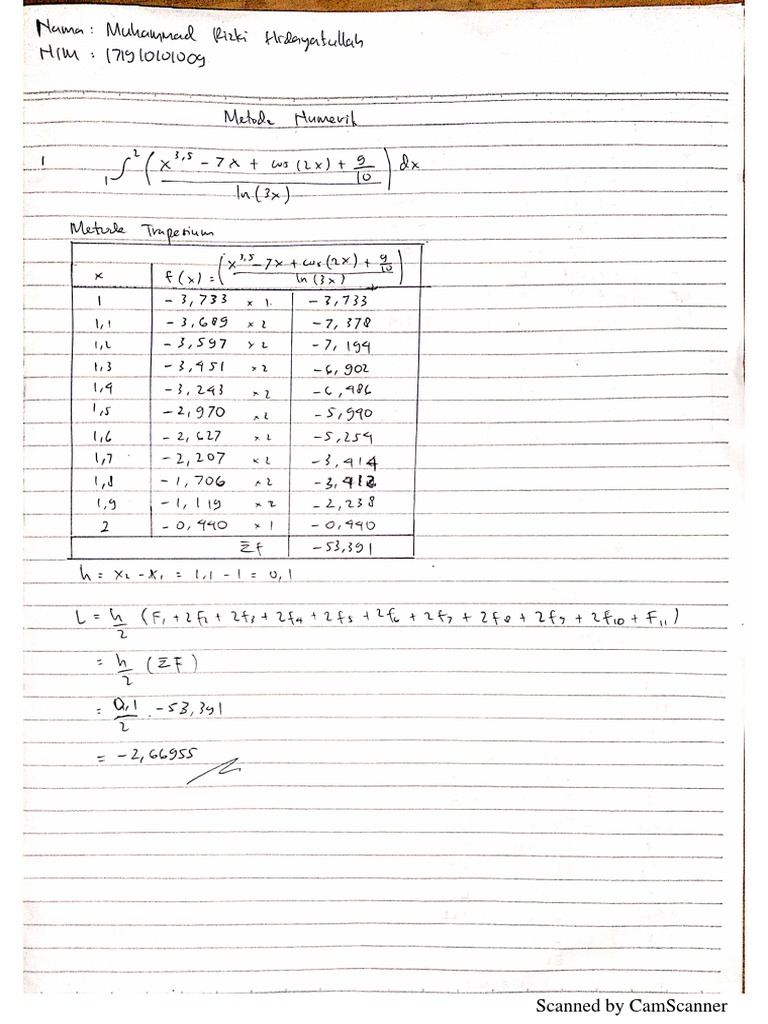 Nama : Muhammad Rizki Hidayatullah
NIM : 171910101009
Metode Numerik
1 ₁∫² ( x^3,5 - 7x + cos (2x) + 9/10 / ln (3x) ) dx
Metode Trapesium
x f(x) = ( x^3,5 - 7x + cos (2x) + 9/10 / ln (3x) )
1 -3,733 x 1 -3,733
1,1 -3,689 x 2 -7,378
1,2 -3,597 x 2 -7,194
1,3 -3,451 x 2 -6,902
1,4 -3,243 x 2 -6,486
1,5 -2,970 x 2 -5,940
1,6 -2,627 x 2 -5,254
1,7 -2,207 x 2 -3,414
1,8 -1,706 x 2 -3,412
1,9 -1,119 x 2 -2,238
2 -0,440 x 1 -0,440
ΣF -53,391
h = x2 - x1 = 1,1 - 1 = 0,1
L = h/2 (F1 + 2f2 + 2f3 + 2f4 + 2f5 + 2f6 + 2f7 + 2f8 + 2f9 + 2f10 + F11)
= h/2 (ΣF)
= 0,1/2 . -53,391
= -2,66955
Scanned by CamScanner